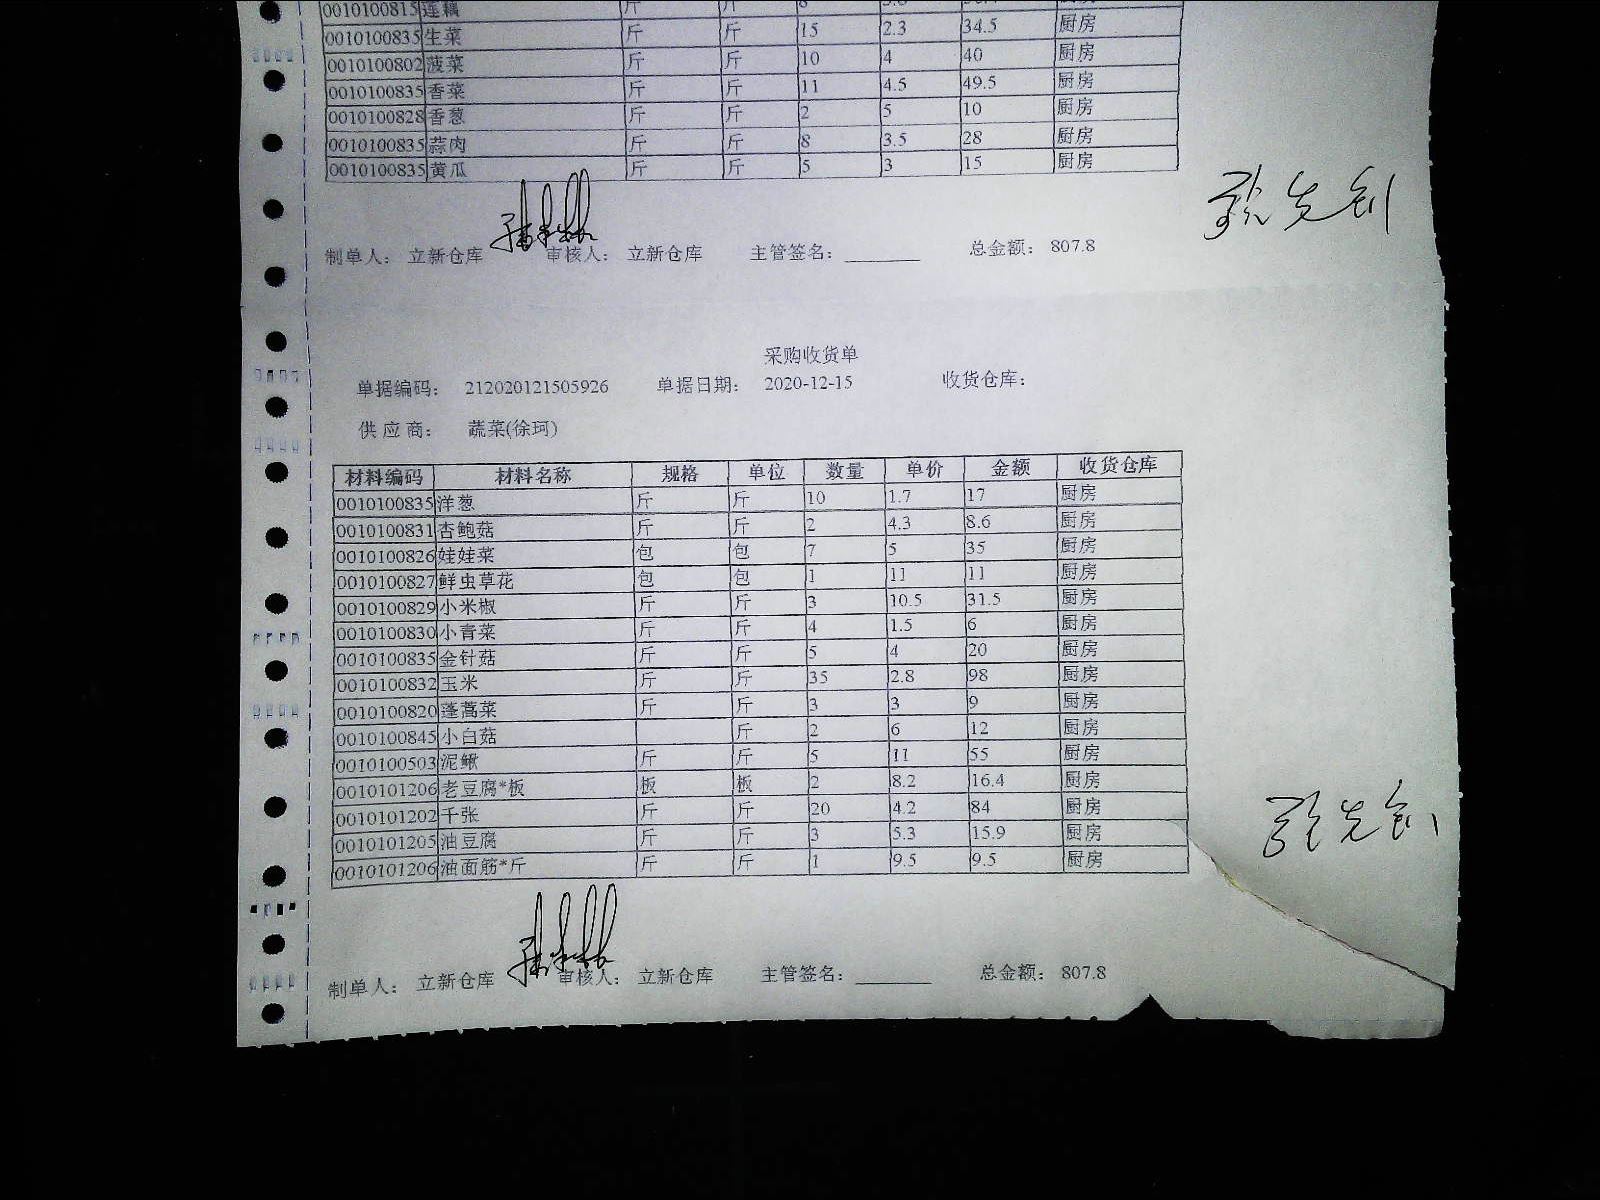 0010100815 莲藕 斤 斤 8
0010100835 生菜 斤 斤 15 2.3 34.5 厨房
0010100802 菠菜 斤 斤 10 4 40 厨房
0010100835 香菜 斤 斤 11 4.5 49.5 厨房
0010100828 香葱 斤 斤 2 5 10 厨房
0010100835 蒜肉 斤 斤 8 3.5 28 厨房
0010100835 黄瓜 斤 斤 5 3 15 厨房
制单人: 立新仓库 审核人: 立新仓库 主管签名:________ 总金额: 807.8
采购收货单
单据编码: 212020121505926 单据日期: 2020-12-15 收货仓库:
供应商: 蔬菜(徐珂)
材料编码 材料名称 规格 单位 数量 单价 金额 收货仓库
0010100835 洋葱 斤 斤 10 1.7 17 厨房
0010100831 杏鲍菇 斤 斤 2 4.3 8.6 厨房
0010100826 娃娃菜 包 包 7 5 35 厨房
0010100827 鲜虫草花 包 包 1 11 11 厨房
0010100829 小米椒 斤 斤 3 10.5 31.5 厨房
0010100830 小青菜 斤 斤 4 1.5 6 厨房
0010100835 金针菇 斤 斤 5 4 20 厨房
0010100832 玉米 斤 斤 35 2.8 98 厨房
0010100820 蓬蒿菜 斤 斤 3 3 9 厨房
0010100845 小白菇 斤 2 6 12 厨房
0010100503 泥鳅 斤 斤 5 11 55 厨房
0010101206 老豆腐*板 板 板 2 8.2 16.4 厨房
0010101202 千张 斤 斤 20 4.2 84 厨房
0010101205 油豆腐 斤 斤 3 5.3 15.9 厨房
0010101206 油面筋*斤 斤 斤 1 9.5 9.5 厨房
制单人: 立新仓库 审核人: 立新仓库 主管签名:________ 总金额: 807.8